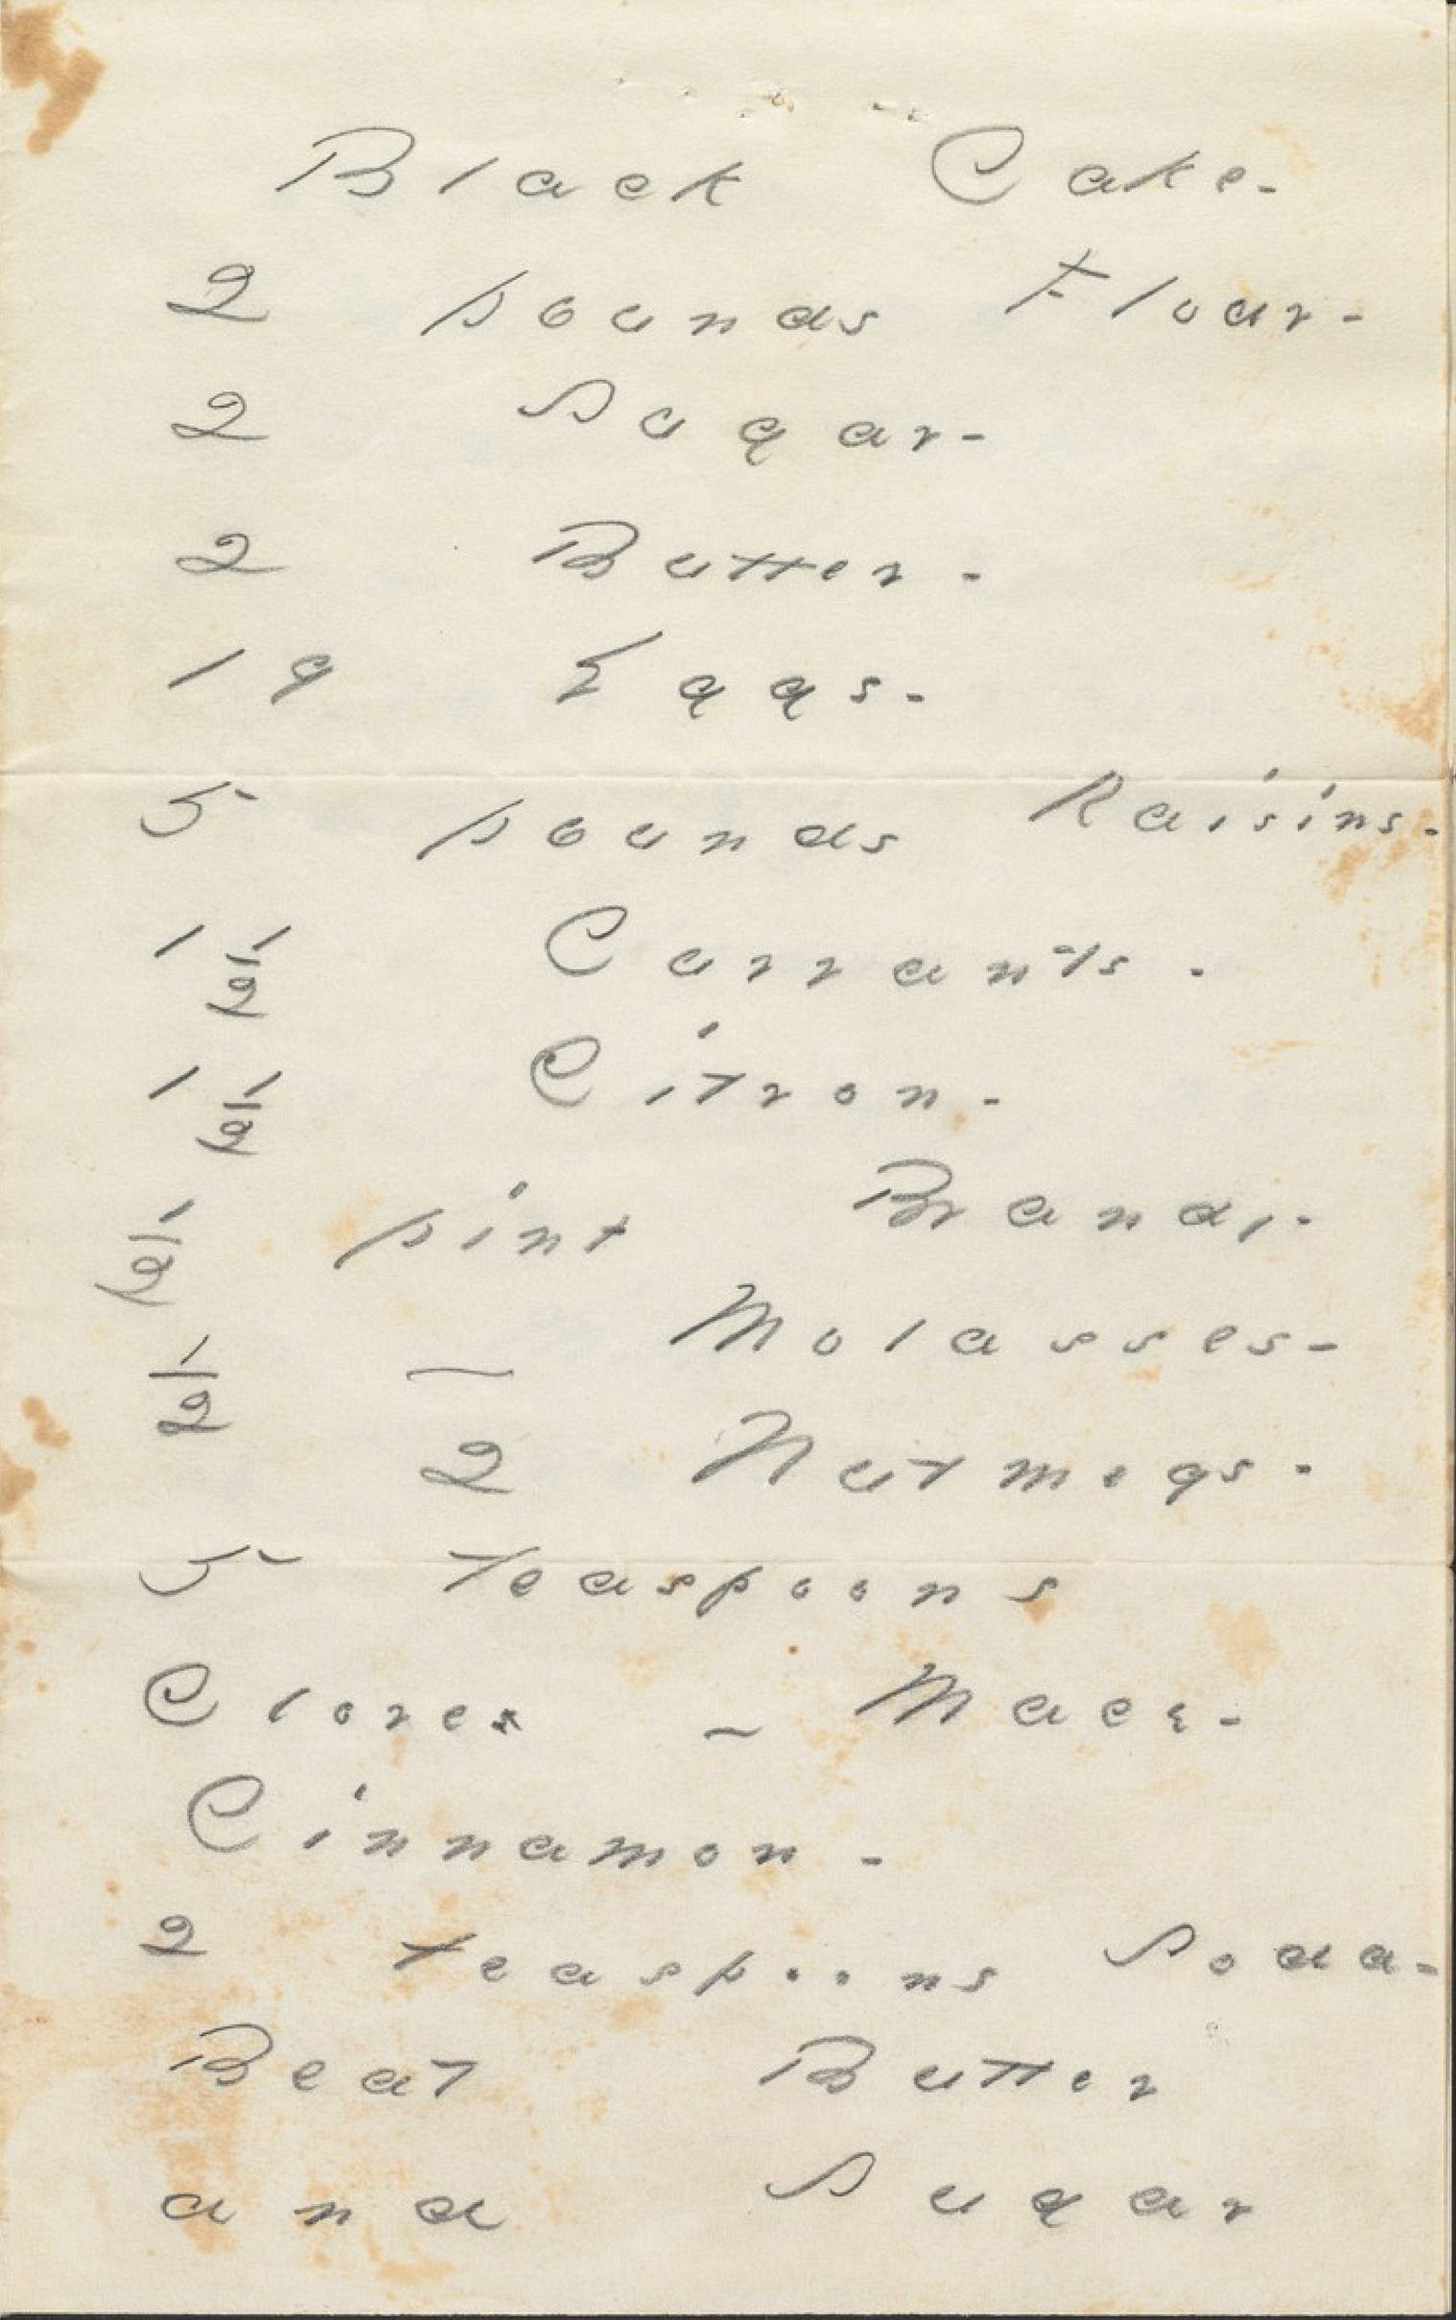 Black Cake-
2 pounds Flour-
2 Sugar-
2 Butter-
19 Eggs-
5 pounds Raisins-
1 1/2 Currants-
1 1/2 Citron-
1/2 pint Brandy-
1/2 — Molasses-
2 Nutmegs-
5 teaspoons
Cloves - Mace-
Cinnamon-
2 teaspoons Soda-
Beat Butter
and Sugar